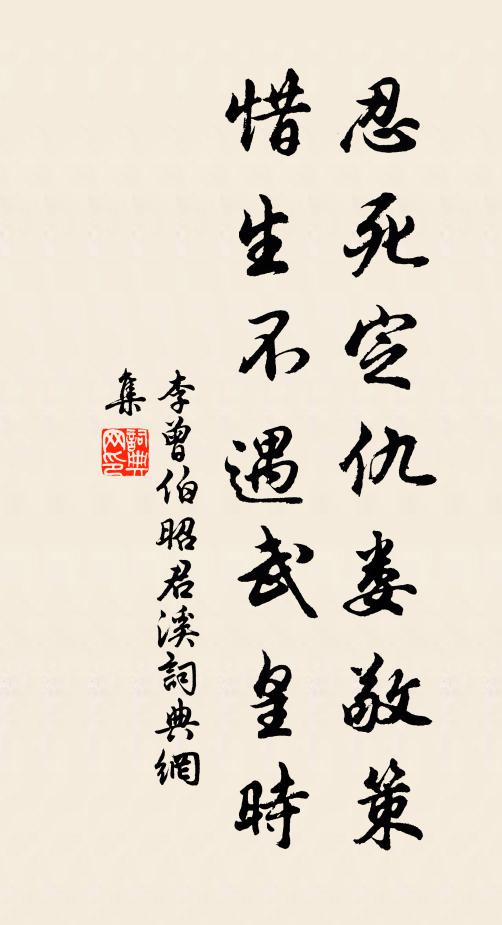 忍死定仇娄敬策
惜生不遇武皇時
李曾伯昭君溪詞典網
集
詞典网印